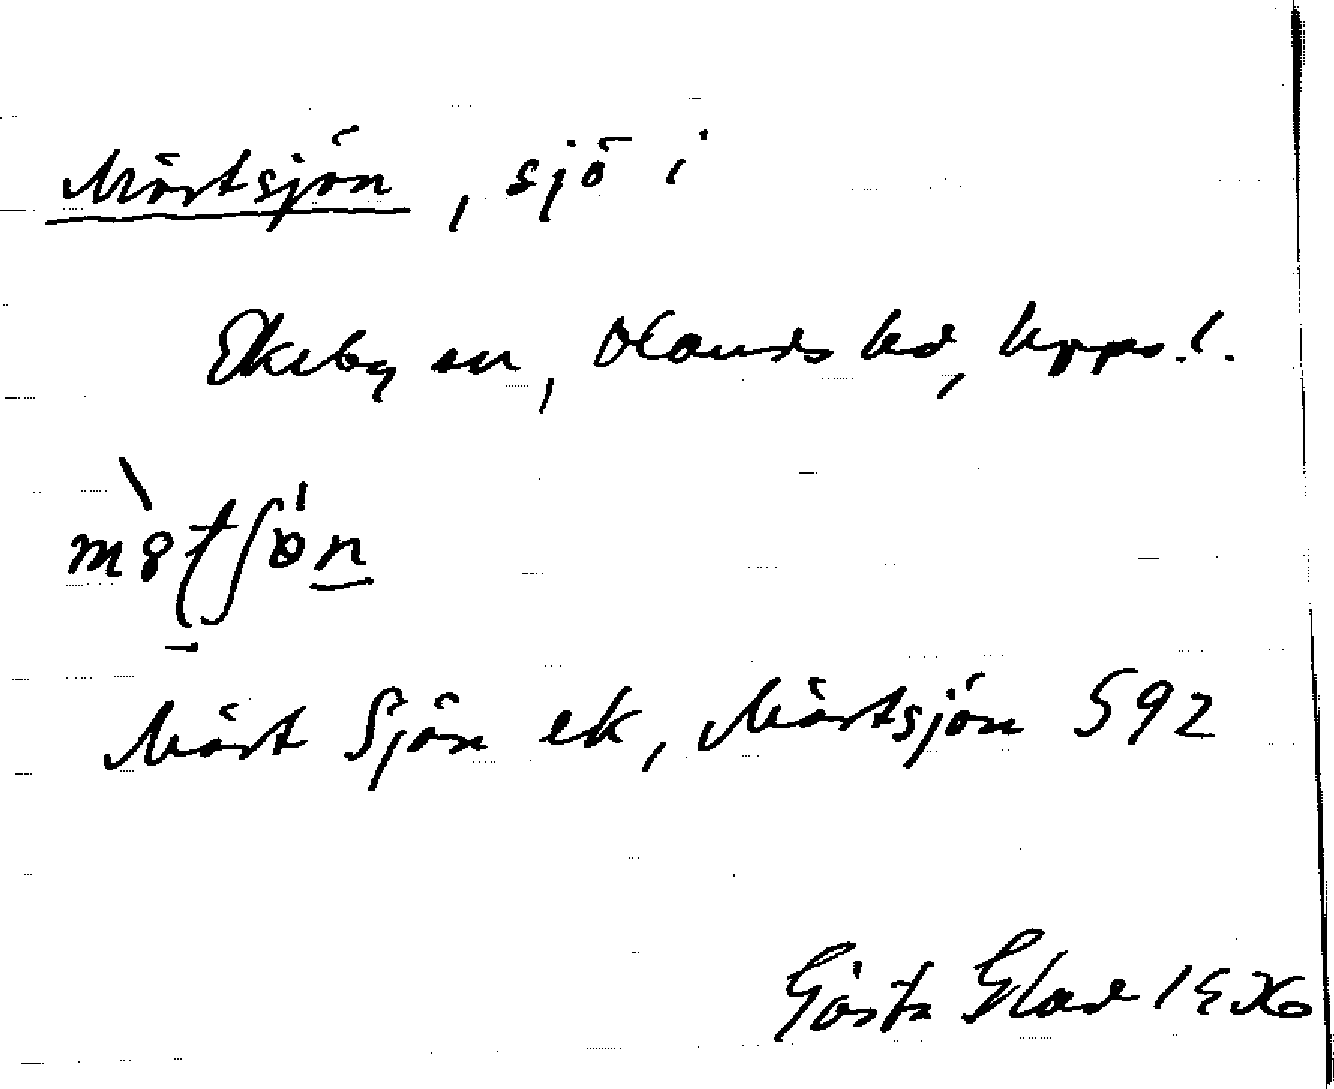 Mörtsjön, sjö i
Ekeby sn, Olands hd, Upps. l.
Mört Sjön ek, Mörtsjön 592
Gösta Glad